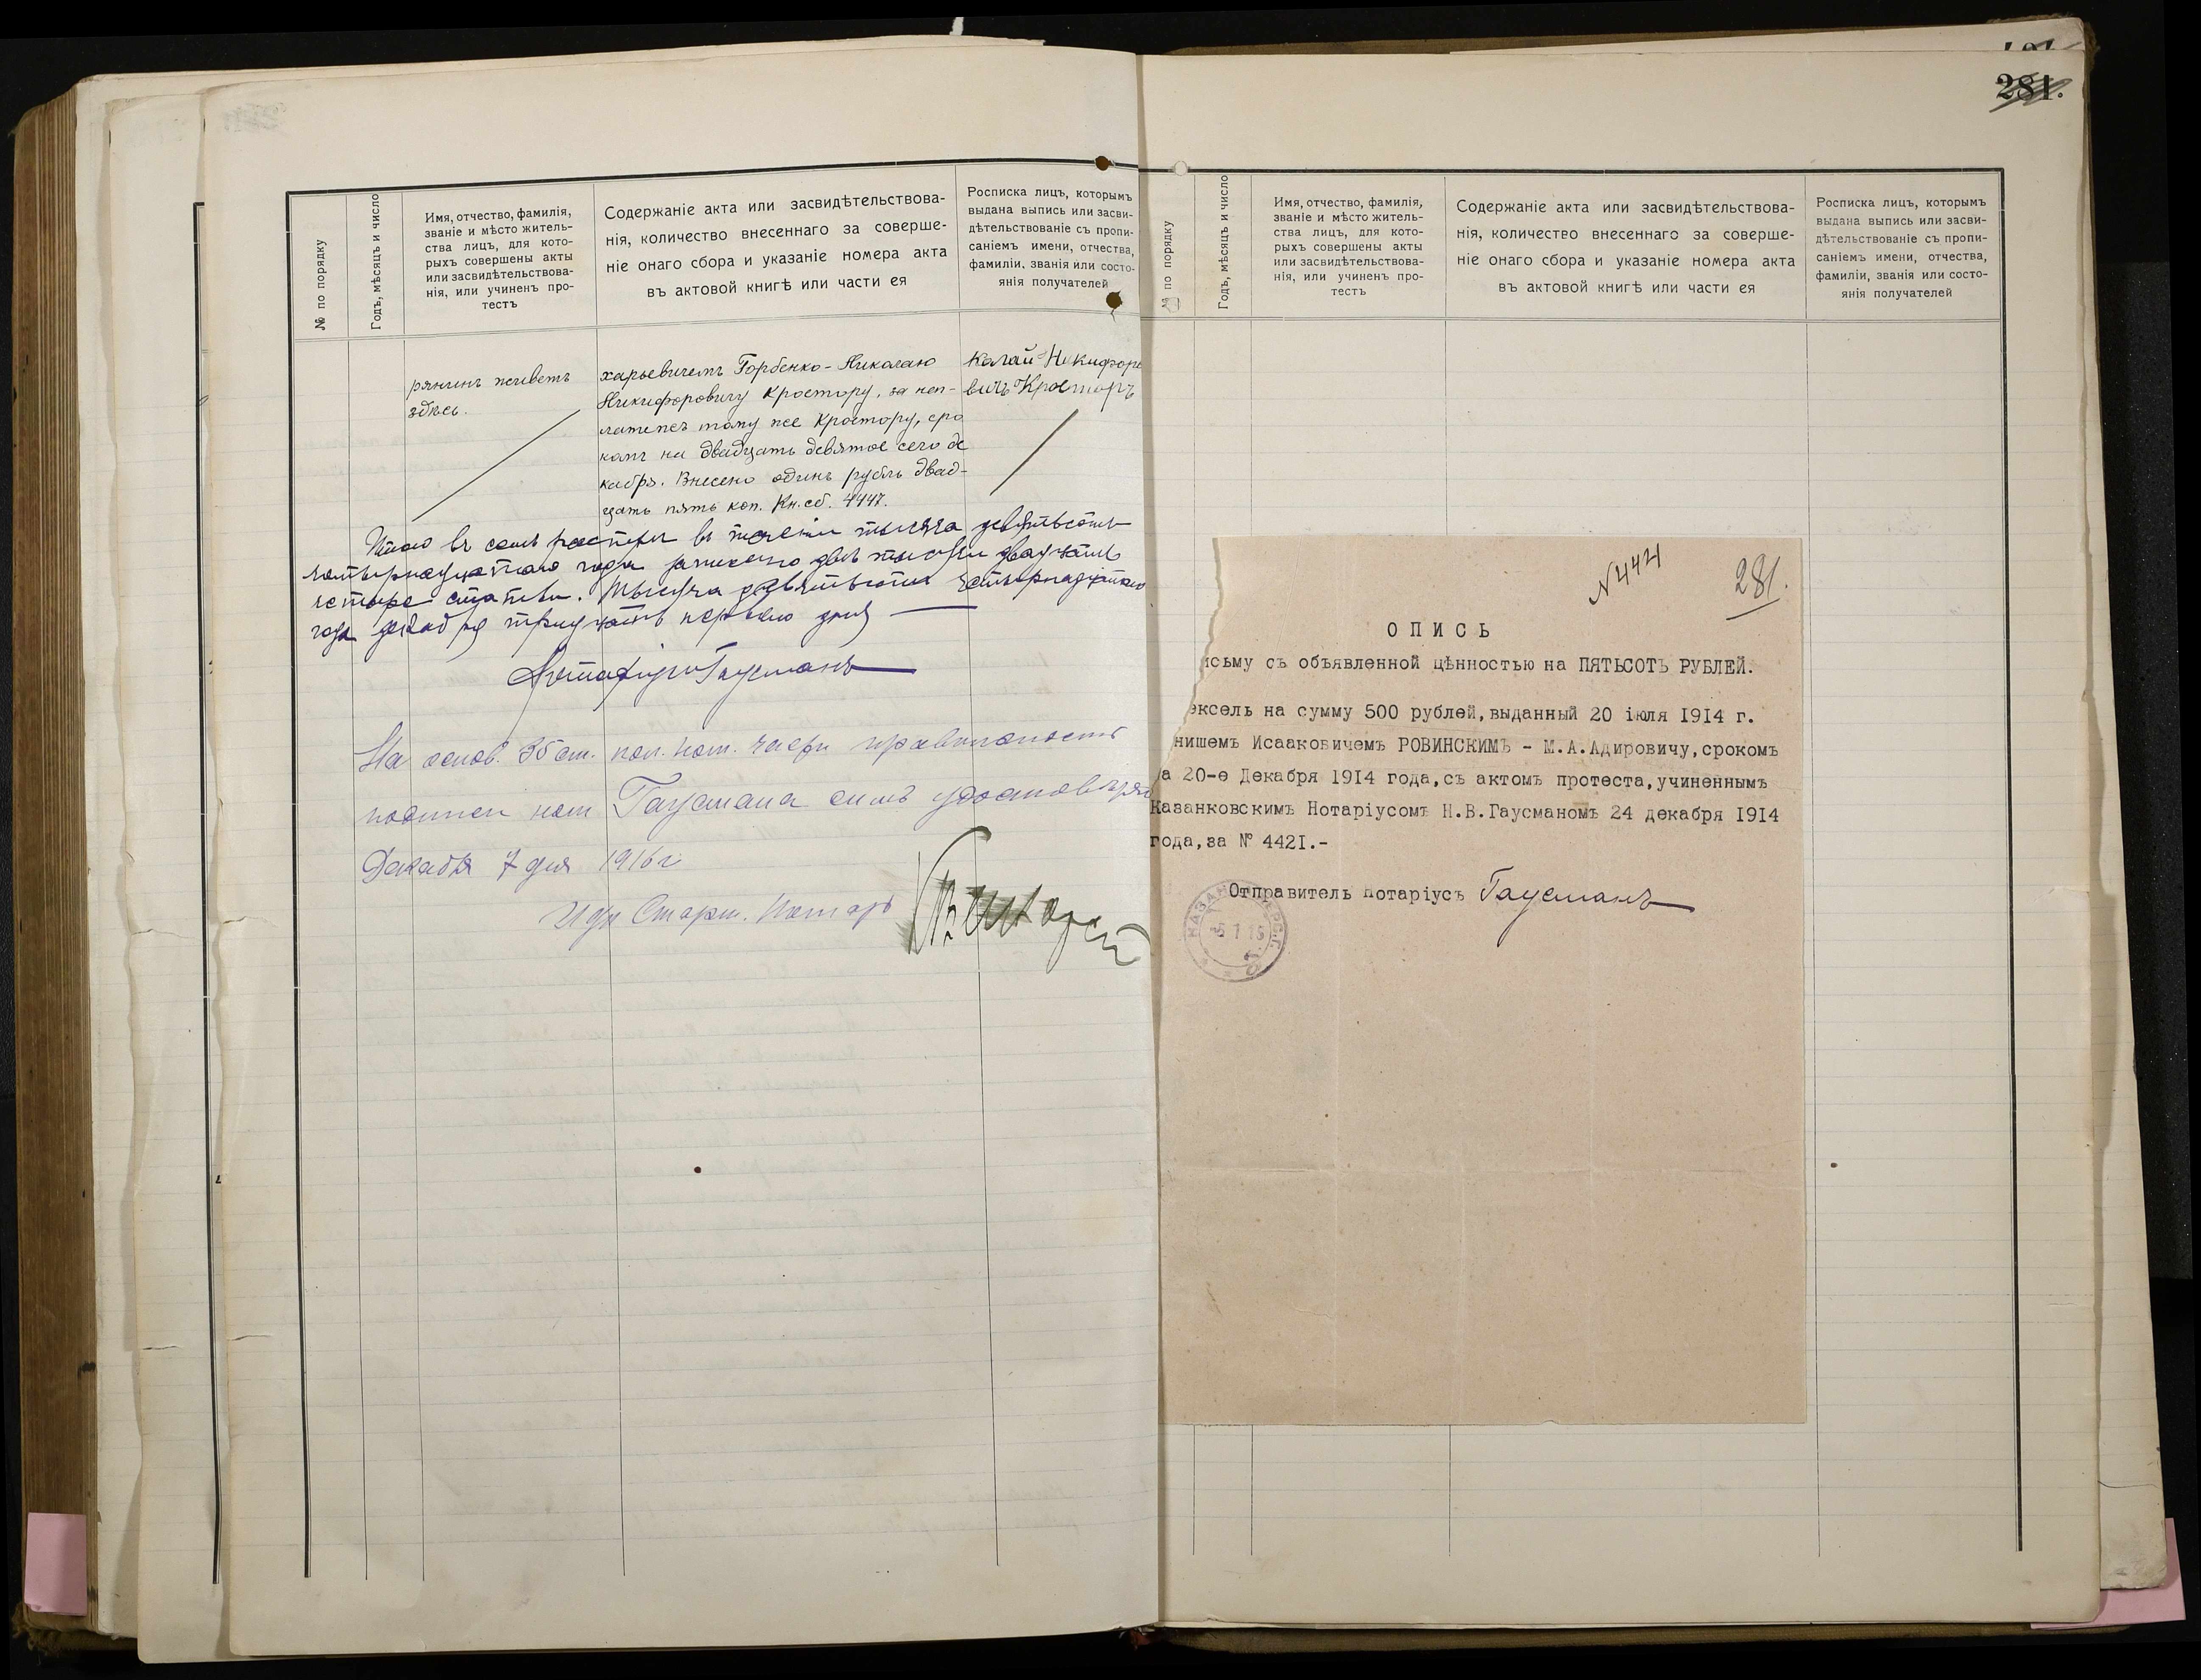 № по порядку
Годъ, мѣсяцъ и число
Имя, отчество, фамилія,
званіе и мѣсто житель-
ства лицъ, для кото-
рыхъ совершены акты
или засвидѣтельствова-
нія, или учиненъ про-
тестъ
Содержаніе акта или засвидѣтельствова-
нія, количество внесеннаго за соверше-
ніе онаго сбора и указаніе номера акта
въ актовой книгѣ или части ея
Росписка лицъ, которымъ
выдана выпись или засви-
дѣтельствованіе съ пропи-
саніемъ имени, отчества,
фамиліи, званія или состо-
янія получателей
рянинъ живетъ
здѣсь.
харьевичемъ Горбенко-Николаю
Никифоровичу Кростору, за неп-
латежъ тому же Кростору, сро
комъ на двадцать девятое сего де
кабря. Внесено одинъ рубль двад-
цать пять коп. Кн. сб. 4447.
колай Никифоро
вичъ Кросторъ
Итого въ семъ реестре въ течении тысяча девятьсотъ
четырнадцатаго года записано две тысячи двадцать
четыре статьи. Тысяча девятьсотъ четырнадцатаго
года декабря тридцать перваго дня
Нотаріусъ Гаусманъ
На основ. 35 ст. пол. нот. части правильность
подписи нот Гаусмана симъ удостоверяю
Декабря 7 дня 1916 г
И др Старш. Нотаръ
281.
№ по порядку
Годъ, мѣсяцъ и число
Имя, отчество, фамилія,
званіе и мѣсто житель-
ства лицъ, для кото-
рыхъ совершены акты
или засвидѣтельствова-
нія, или учиненъ про-
тестъ
Содержаніе акта или засвидѣтельствова-
нія, количество внесеннаго за соверше-
ніе онаго сбора и указаніе номера акта
въ актовой книгѣ или части ея
Росписка лицъ, которымъ
выдана выпись или засви-
дѣтельствованіе съ пропи-
саніемъ имени, отчества,
фамиліи, званія или состо-
янія получателей
281.
ОПИСЬ
исьму съ объявленной цѣнностью на ПЯТЬСОТЪ РУБЛЕЙ.
ексель на сумму 500 рублей, выданный 20 іюля 1914 г.
нишемъ Исааковичемъ РОВИНСКИМЪ - М.А.Адировичу, срокомъ
а 20-е Декабря 1914 года, съ актомъ протеста, учиненнымъ
Казанковскимъ Нотаріусомъ Н.В.Гаусманомъ 24 декабря 1914
года, за № 4421.-
Отправитель Нотаріусъ Гаусманъ